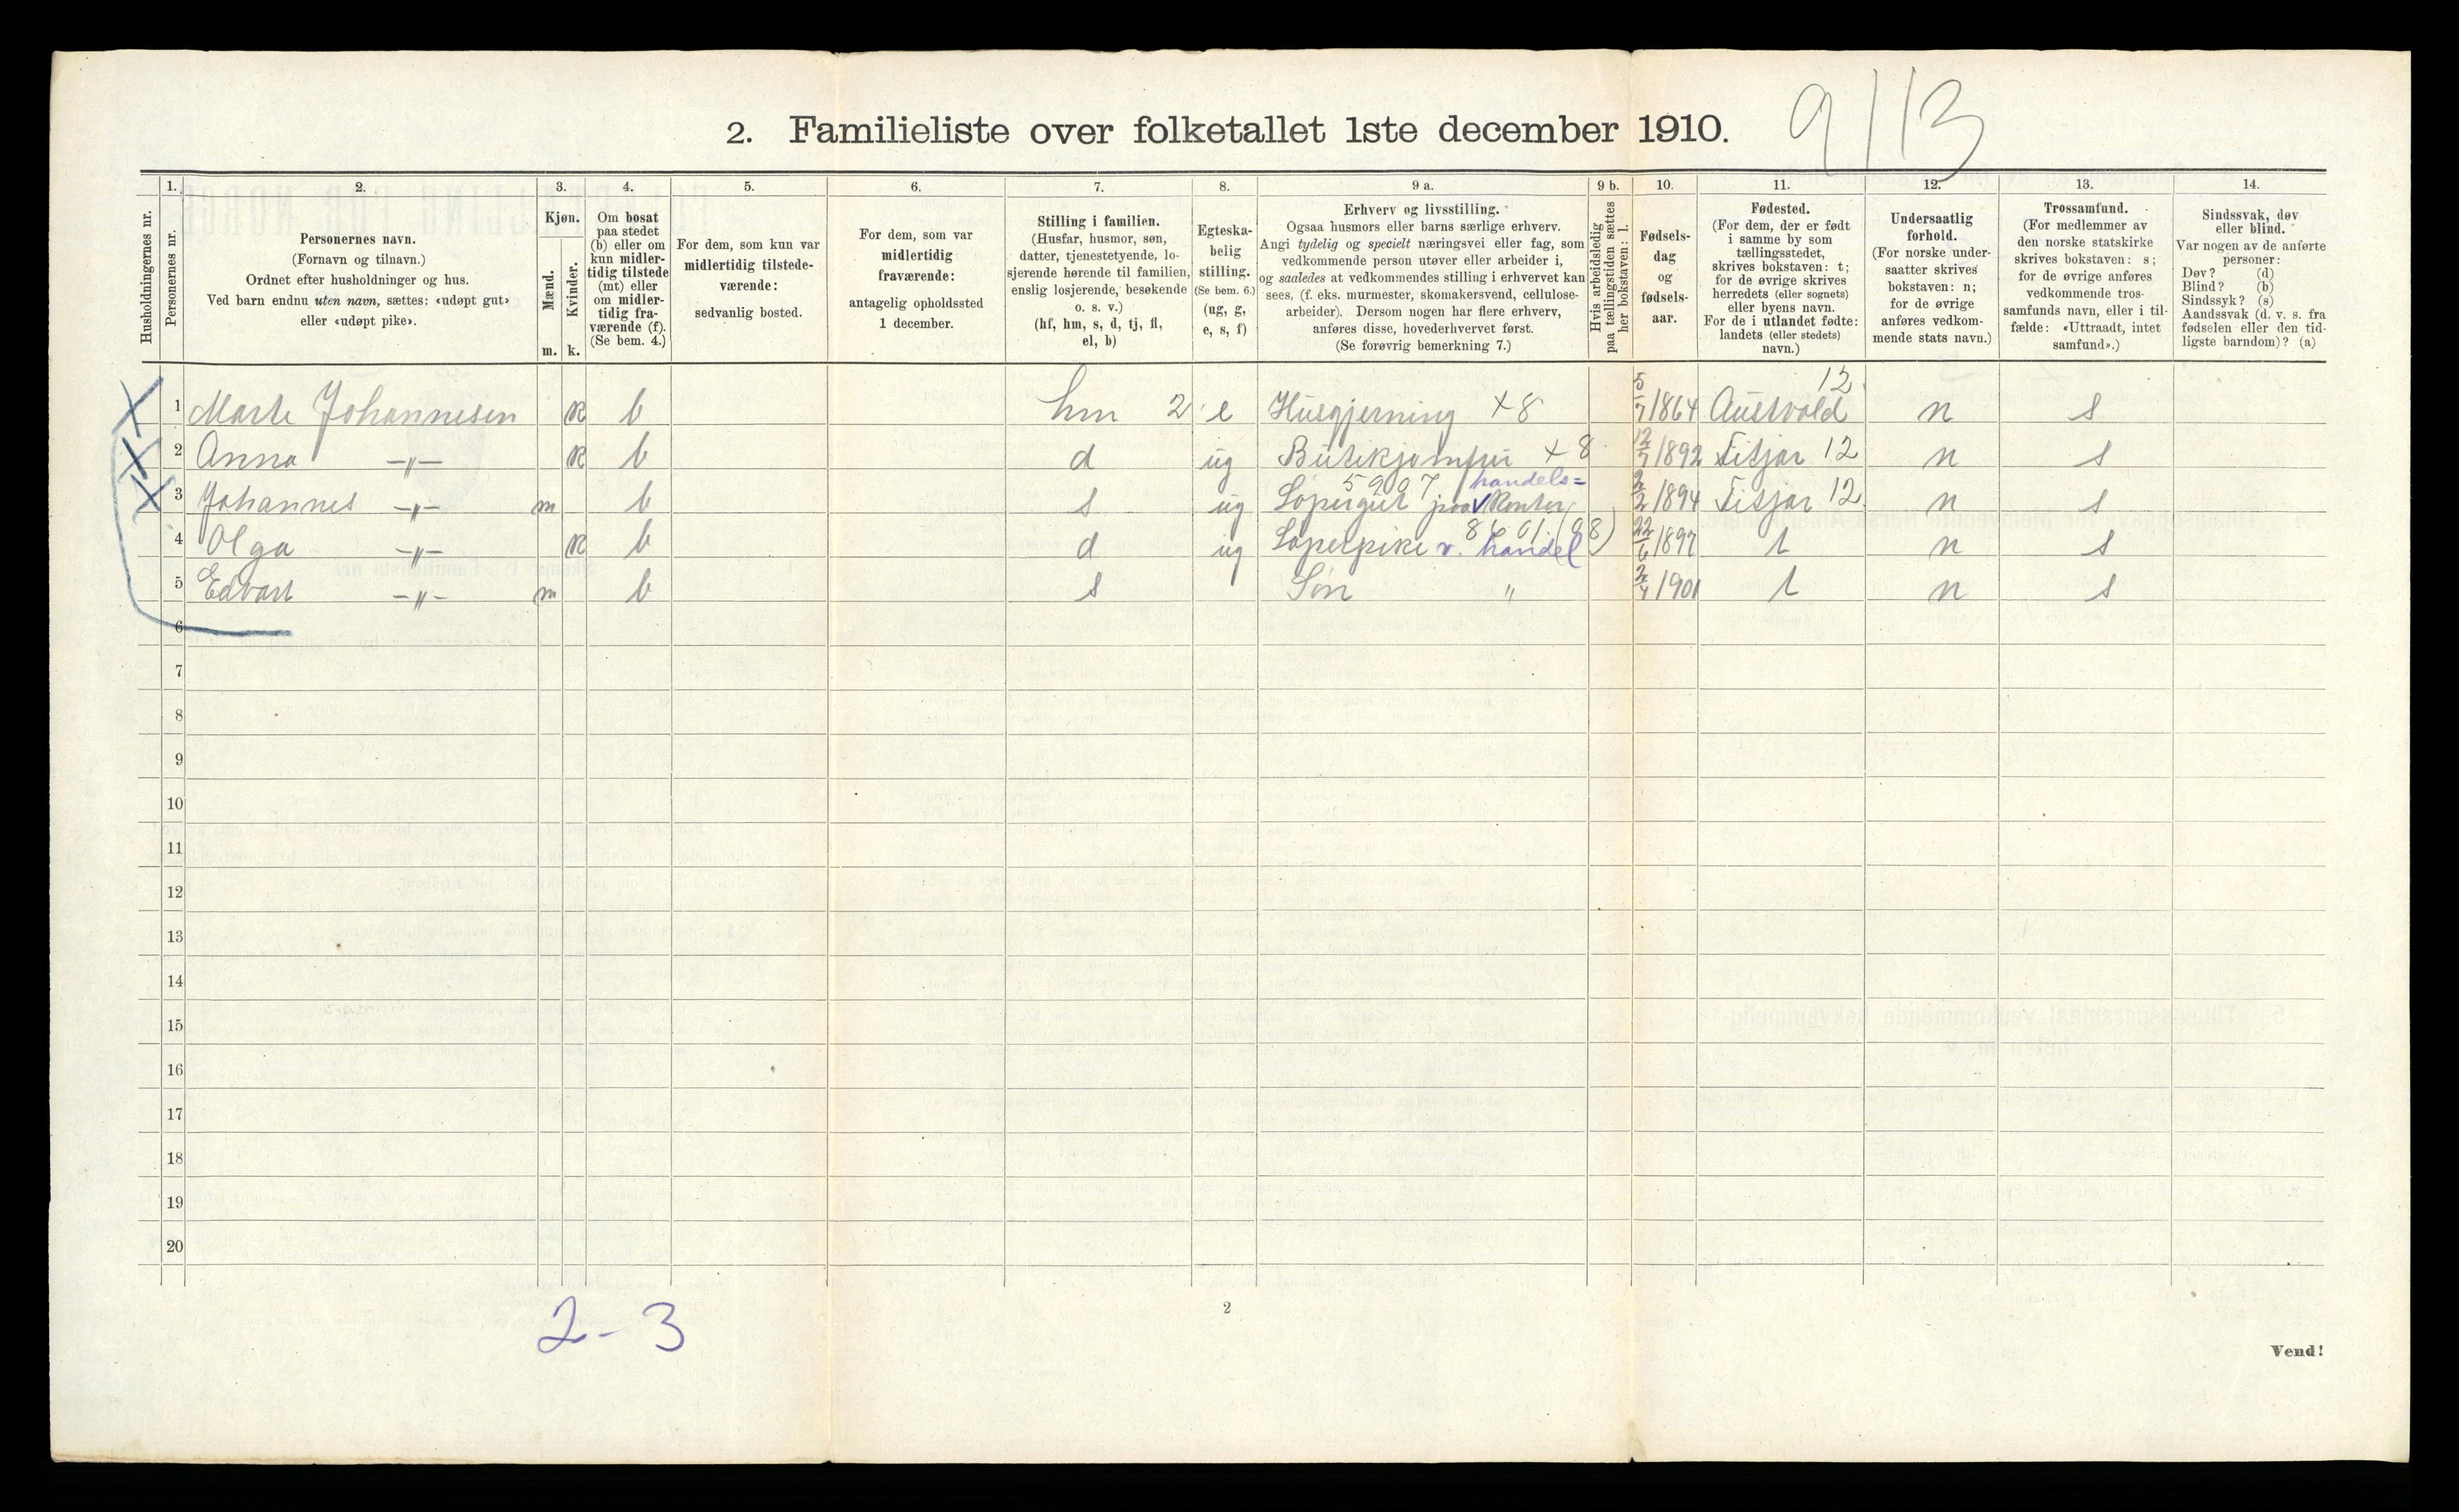 2. Familieliste over folketallet 1ste december 1910. 9/13
Husholdningernes nr.
1. Personernes nr.
2. Personernes navn. (Fornavn og tilnavn.) Ordnet efter husholdninger og hus. Ved barn endnu uten navn, sættes: «udøpt gut» eller «udøpt pike».
3. Kjøn. Mænd. m. Kvinder. k.
4. Om bosat paa stedet (b) eller om kun midlertidig tilstede (mt) eller om midlertidig fraværende (f). (Se bem. 4.)
5. For dem, som kun var midlertidig tilstedeværende: sedvanlig bosted.
6. For dem, som var midlertidig fraværende: antagelig opholdssted 1 december.
7. Stilling i familien. (Husfar, husmor, søn, datter, tjenestetyende, losjerende hørende til familien, enslig losjerende, besøkende o. s. v.) (hf, hm, s, d, tj, fl, el, b)
8. Egteskabelig stilling. (Se bem. 6.) (ug, g, e, s, f)
9 a. Erhverv og livsstilling. Ogsaa husmors eller barns særlige erhverv. Angi tydelig og specielt næringsvei eller fag, som vedkommende person utøver eller arbeider i, og saaledes at vedkommendes stilling i erhvervet kan sees, (f. eks. murmester, skomakersvend, cellulosearbeider). Dersom nogen har flere erhverv, anføres disse, hovederhvervet først. (Se forøvrig bemerkning 7.)
9 b. Hvis arbeidsledig paa tællingstiden sættes her bokstaven: l.
10. Fødselsdag og fødselsaar.
11. Fødested. (For dem, der er født i samme by som tællingsstedet, skrives bokstaven: t; for de øvrige skrives herredets (eller sognets) eller byens navn. For de i utlandet fødte: landets (eller stedets) navn.)
12. Undersaatlig forhold. (For norske undersaatter skrives bokstaven: n; for de øvrige anføres vedkommende stats navn.)
13. Trossamfund. (For medlemmer av den norske statskirke skrives bokstaven: s; for de øvrige anføres vedkommende trossamfunds navn, eller i tilfælde: «Uttraadt, intet samfund».)
14. Sindssvak, døv eller blind. Var nogen av de anførte personer: Døv? (d) Blind? (b) Sindssyk? (s) Aandssvak (d. v. s. fra fødselen eller den tidligste barndom)? (a)
12
1 Marte Johannesen k b hm 2 e Husgjerning +8 5/7 1864 Austvold n s
2 Anna -"- k b d ug Butikjomfru +8 12/7 1892 Fitjar 12 n s
5907 handels=
3 Johannes -"- m b s ug Løpergut paa Kontor 2/2 1894 Fitjar 12 n s
4 Olga -"- k b d ug Løperpike v. handel 22/6 1897 t n s
5 Edvart -"- m b s Søn " 2/4 1901 t n s
6
7
8
9
10
11
12
13
14
15
16
17
18
19
20
2-3
2
Vend!